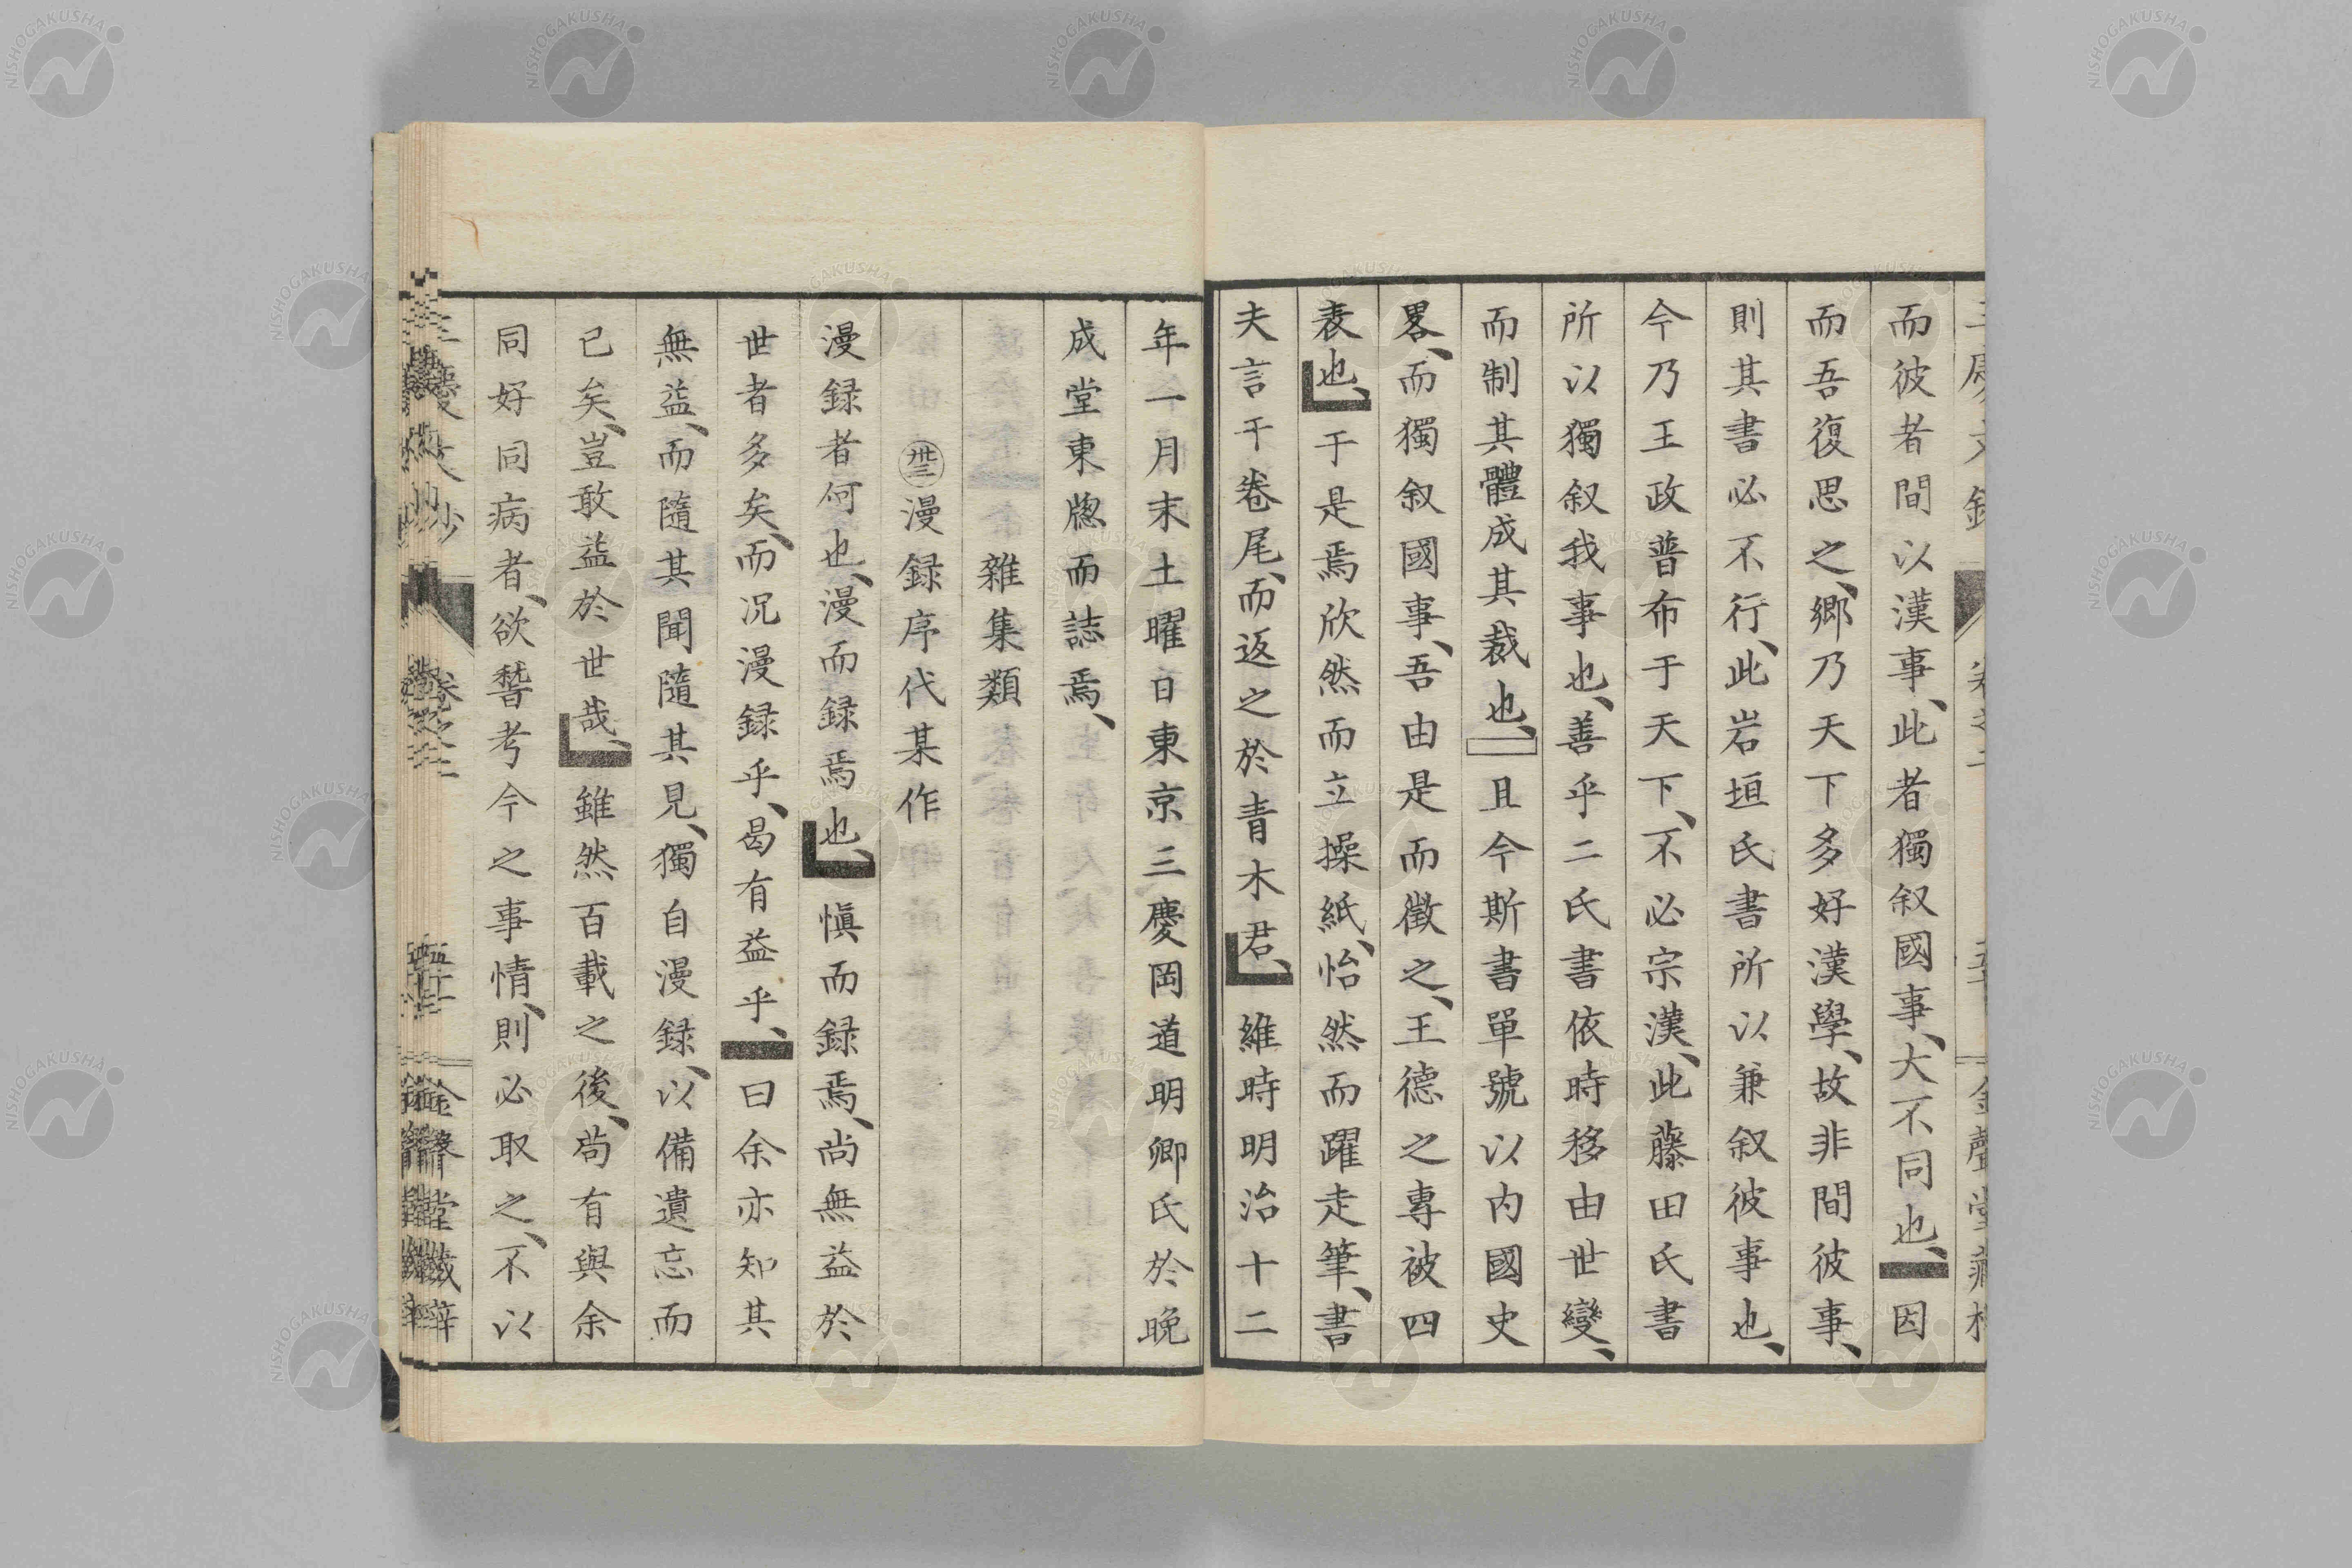 而彼者間以漢事、此者獨叙國事、大不同也、因
而吾復思之、郷乃天下多好漢學、故非間彼事、
則其書必不行、此岩垣氏書所以兼叙彼事也、
今乃王政普布于天下、不必宗漢、此藤田氏書
所以獨叙我事也、善乎二氏書依時移由世變、
而制其體成其裁也、且今斯書單號以内國史
畧、而獨叙國事、吾由是而徵之、王德之專被四
表也、于是焉欣然而立操紙、怡然而躍走筆、書
夫言于卷尾、而返之於青木君、維時明治十二
年一月末土曜日東京三慶岡道明卿氏於晩
成堂東牕而誌焉、
雜集類
卅三漫録序代某作
漫録者何也、漫而録焉也、愼而録焉、尚無益於
世者多矣、而况漫録乎、曷有益乎、曰余亦知其
無益、而隨其聞隨其見、獨自漫録、以備遺忘而
已矣、豈敢益於世哉、雖然百載之後、苟有與余
同好同病者、欲稽考今之事情、則必取之、不以